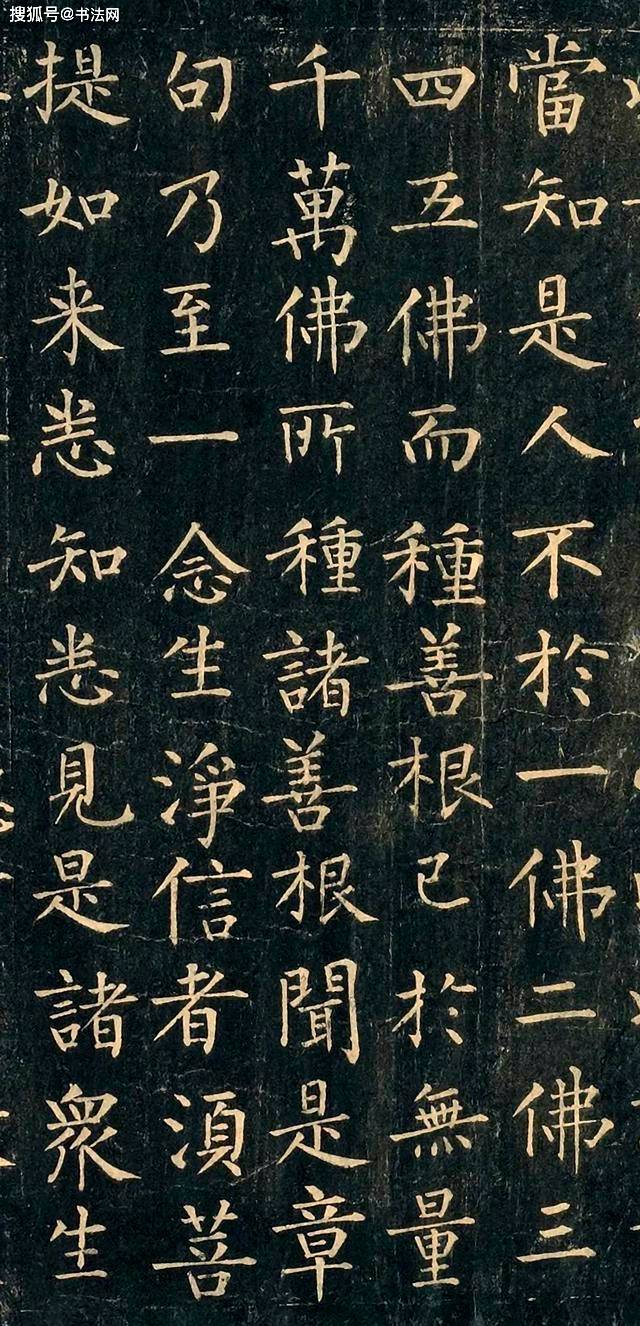 搜狐号@书法网
當知是人不於一佛二佛三
四五佛而種善根已於無量
千萬佛所種諸善根聞是章
句乃至一念生淨信者湏菩
提如来悉知悉見是諸衆生